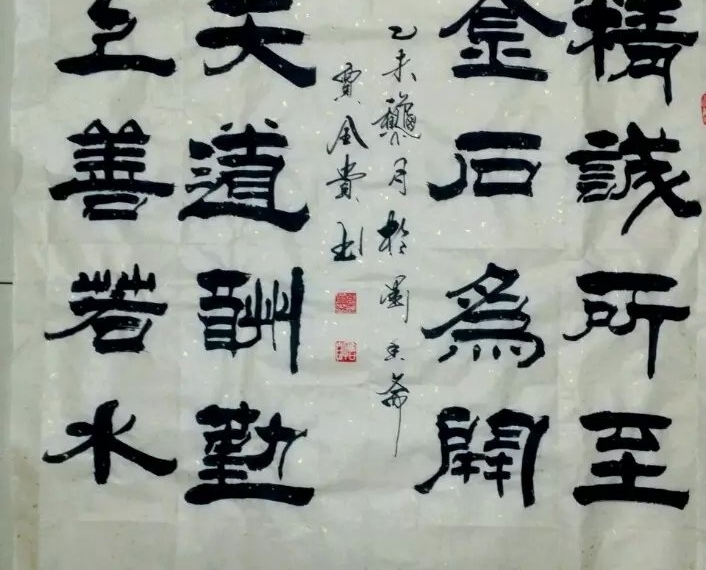 精誠所至
金石為開
乙未龝月於墨香斋
賈貴书
天道酬勤
上善若水